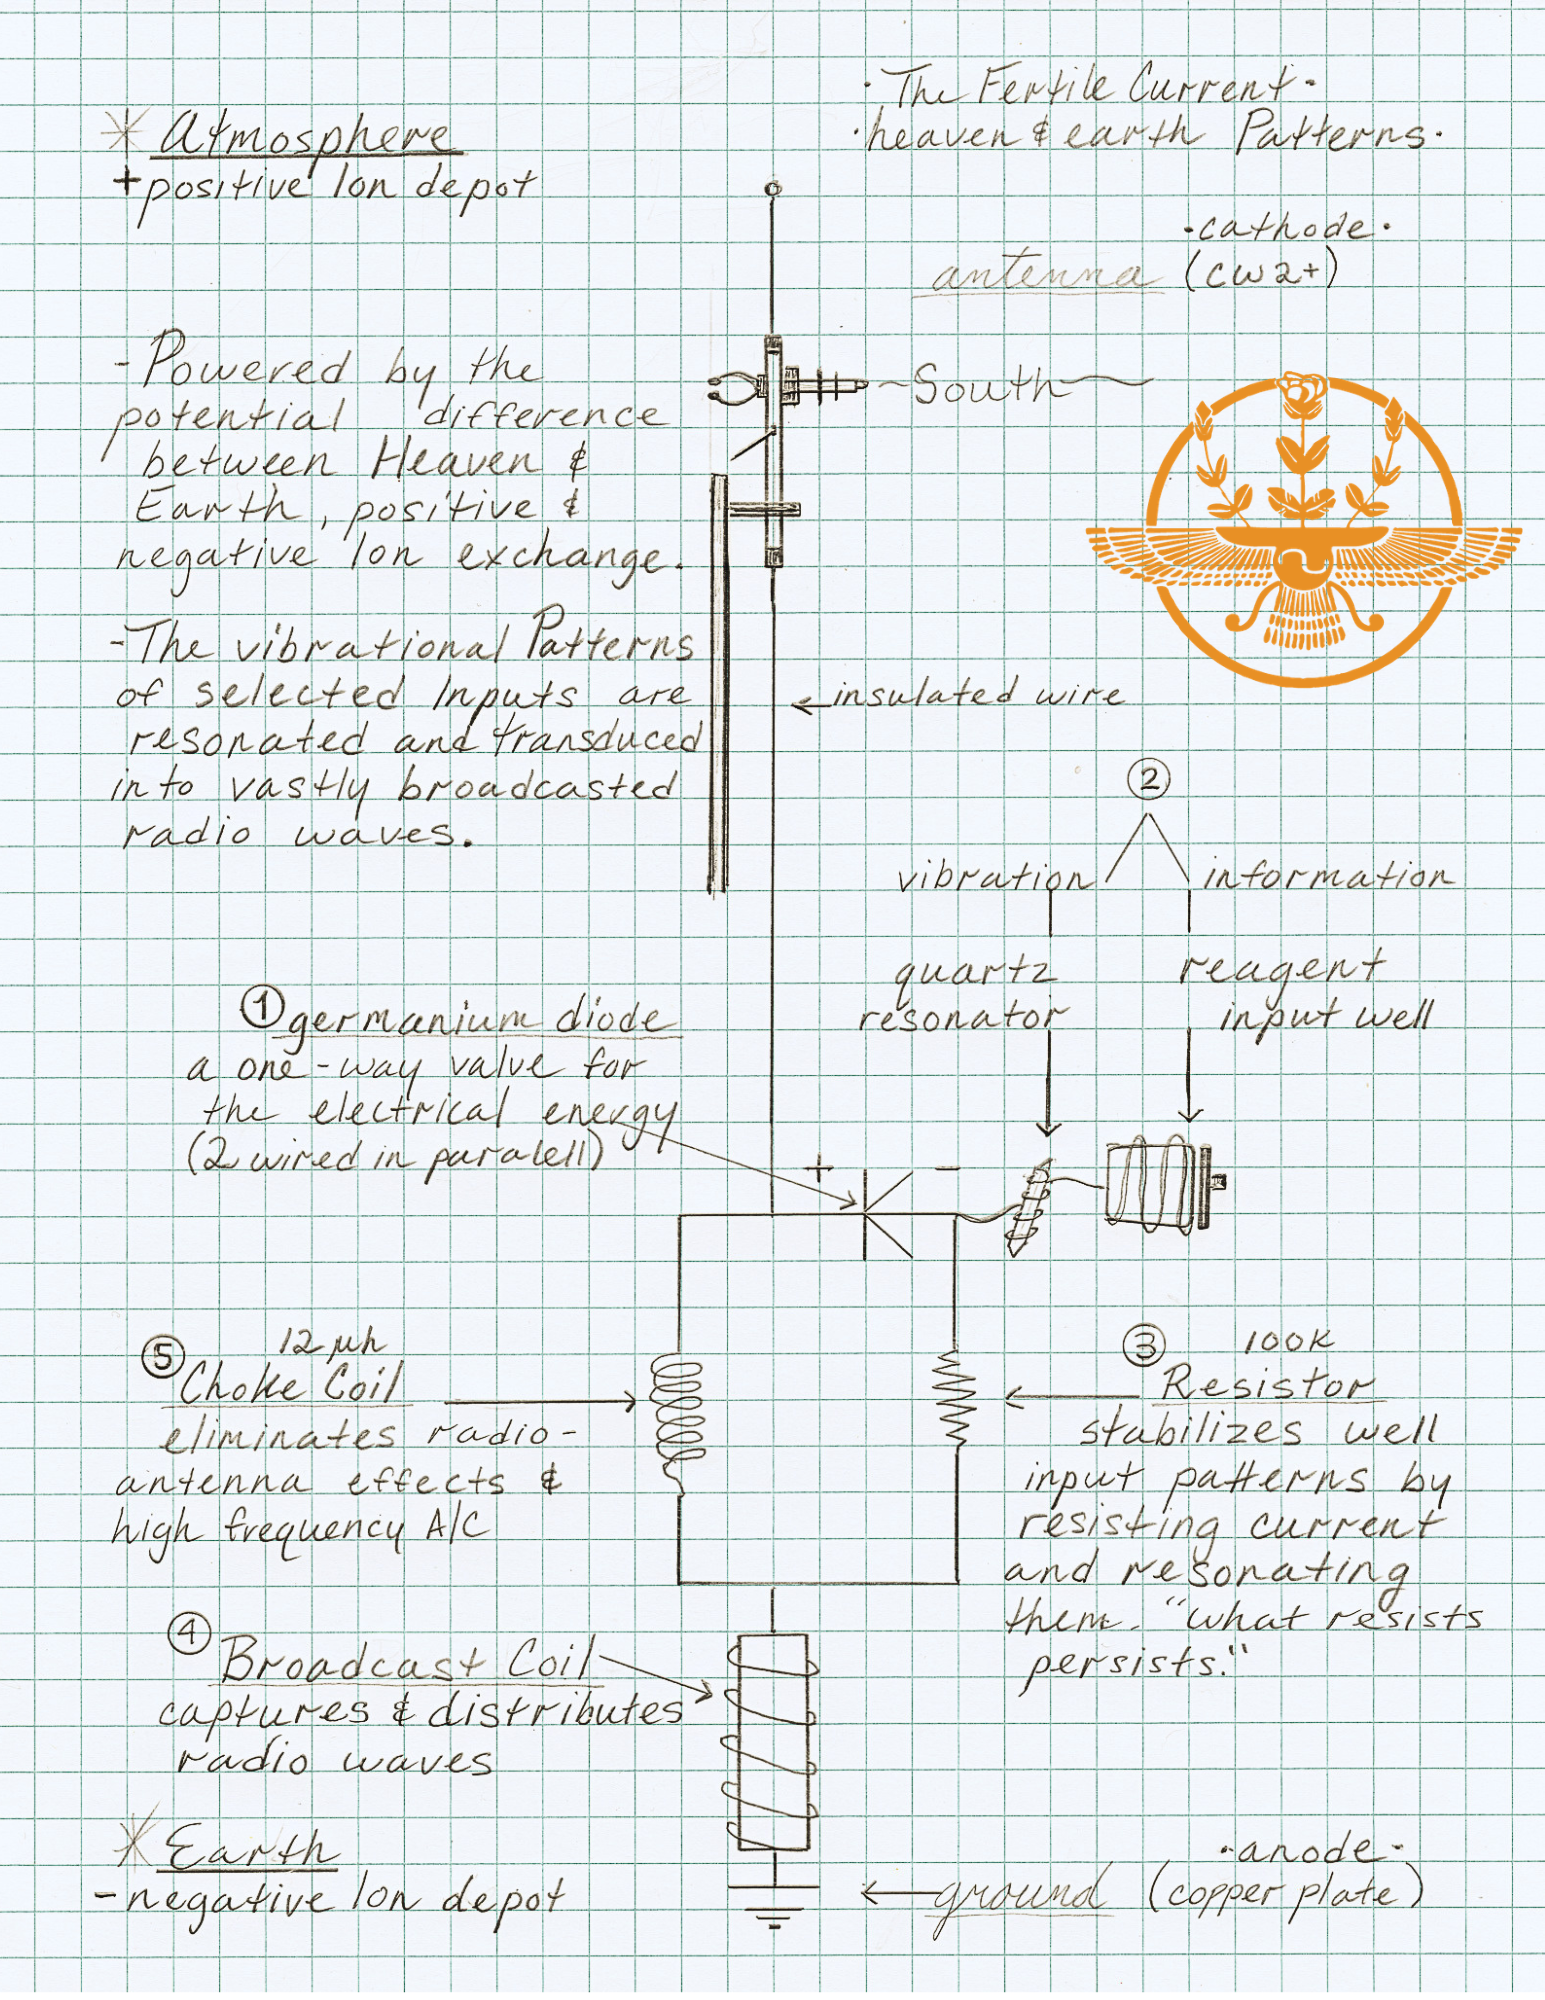 · The Fertile Current ·
· heaven & earth Patterns ·
* Atmosphere
+ positive Ion depot
· cathode ·
antenna (cw2+)
- Powered by the
potential difference
between Heaven &
Earth, positive &
negative Ion exchange.
~South~
- The vibrational Patterns
of selected Inputs are
resonated and transduced
into vastly broadcasted
radio waves.
insulated wire
2
vibration information
quartz
resonator
reagent
input well
1 germanium diode
a one-way valve for
the electrical energy
(2 wired in paralell)
+ -
5 12 μh
Choke Coil
eliminates radio-
antenna effects &
high frequency A/C
3 100K
Resistor
stabilizes well
input patterns by
resisting current
and resonating
them. "what resists
persists."
4 Broadcast Coil
captures & distributes
radio waves
* Earth
- negative Ion depot
· anode ·
ground (copper plate)